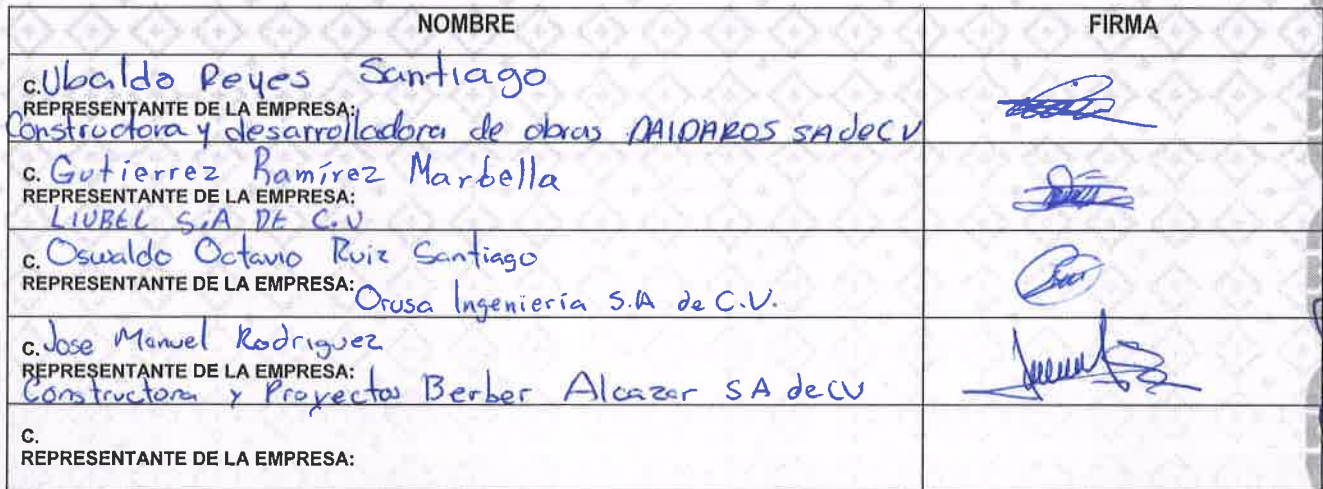 NOMBRE FIRMA
C. Ubaldo Reyes Santiago
REPRESENTANTE DE LA EMPRESA:
Constructora y desarrolladora de obras DAIDAROS SA de CV
C. Gutierrez Ramírez Marbella
REPRESENTANTE DE LA EMPRESA:
LIUBEL S.A DE C.V
C. Oswaldo Octavio Ruiz Santiago
REPRESENTANTE DE LA EMPRESA:
Orusa Ingeniería S.A de C.V.
C. Jose Manuel Rodriguez
REPRESENTANTE DE LA EMPRESA:
Constructora y Proyectos Berber Alcazar SA de CV
C.
REPRESENTANTE DE LA EMPRESA: